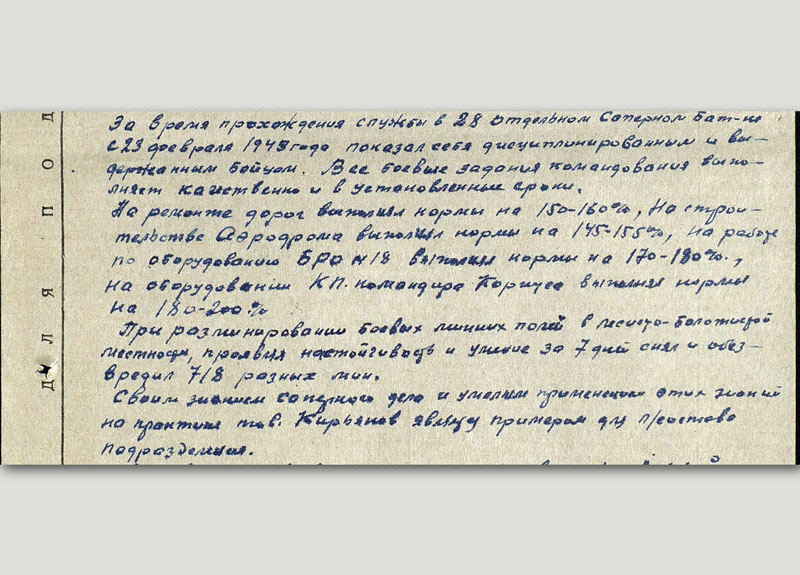 За время прохождения службы в 28 отдельном Саперном Бат-не
с 23 февраля 1943 года показал себя дисциплинированным и вы-
держанным бойцом. Все боевые задания командования выпо-
лняет качественно и в установленные сроки.
На ремонте дорог выполнял нормы на 150-160%, на строи-
тельстве Аэродрома выполнял нормы на 145-155%, на работе
по оборудованию БРО №18 выполнял нормы на 170-180%,
на оборудовании КП. командира Корпуса выполнял нормы
на 180-200%
При разминировании боевых минных полей в лесисто-болотистой
местности, проявил настойчивость и умение за 7 дней снял и обез-
вредил 718 разных мин.
Своим знанием саперного дела и умелым применением этих знаний
на практике тов. Кирьянов явл примером для л/состава
подразделения.
ДЛЯ ПОД